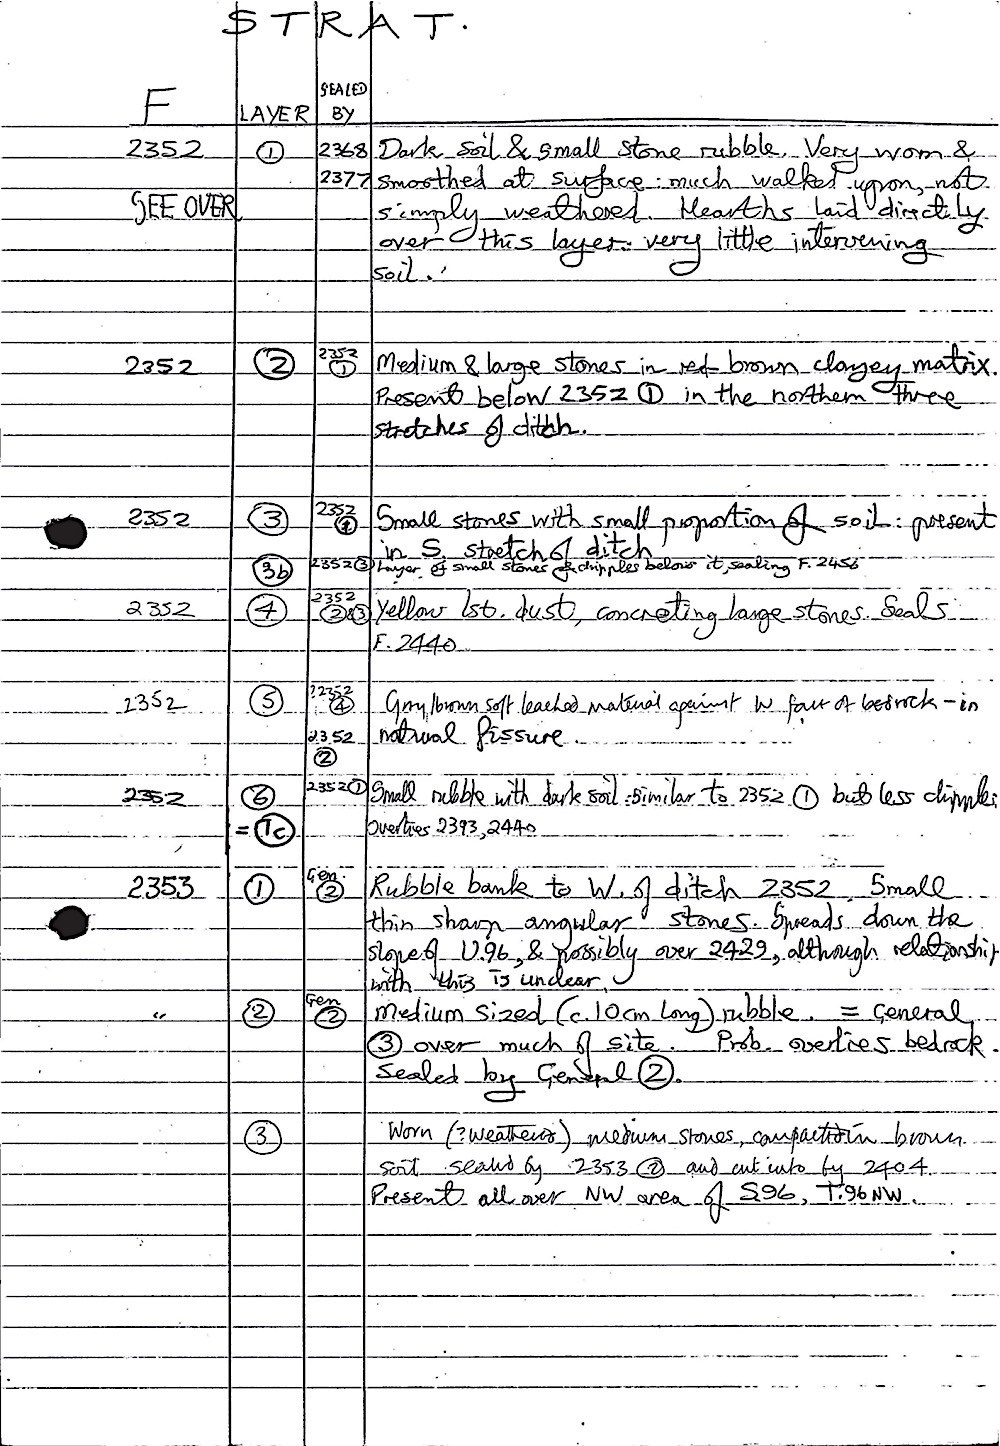 STRAT.
F LAYER SEALED BY
2352 ① 2368 Dark soil & small stone rubble. Very worn &
2377 smoothed at surface: much walked upon, not
SEE OVER simply weathered. Hearths laid directly
over this layer: very little intervening
soil.
2352 ② 2352 ① Medium & large stones in red brown clayey matrix.
Present below 2352 ① in the northern three
stretches of ditch.
2352 ③ 2352 ① Small stones with small proportion of soil: present
in S. stretch of ditch
3b 2352 ③ Layer of small stones & chipples below it, sealing F. 2456
2352 ④ 2352 ②③ Yellow lst. dust, concreting large stones. Seals
F. 2440
2352 ⑤ ?2352 ④ Grey/brown soft leached material against W face of bedrock - in
2352 ② natural fissure.
2352 ⑥ 2352 ① Small rubble with dark soil: similar to 2352 ① but less chipples
= 1c Overlies 2393, 2440
2353 ① Gen. ② Rubble bank to W. of ditch 2352. Small
thin sharp angular stones. Spreads down the
slope of U.96, & possibly over 2429, although relationship
with this is unclear.
" ② Gen ② Medium sized (c. 10cm long) rubble. = General
③ over much of site. Prob. overlies bedrock.
Sealed by General ②.
③ Worn (?weathered) medium stones, compacted in brown
soil sealed by 2353 ② and cut into by 2404.
Present all over NW area of S96, T.96 NW.